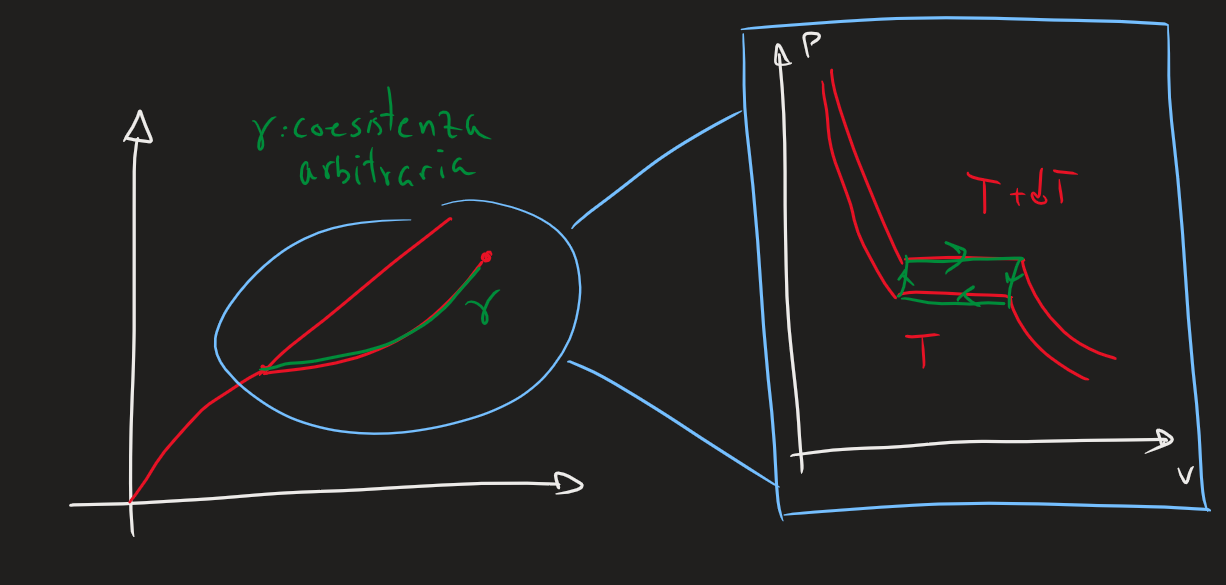 γ: coesistenza
arbitraria
γ
P
T + dT
T
V